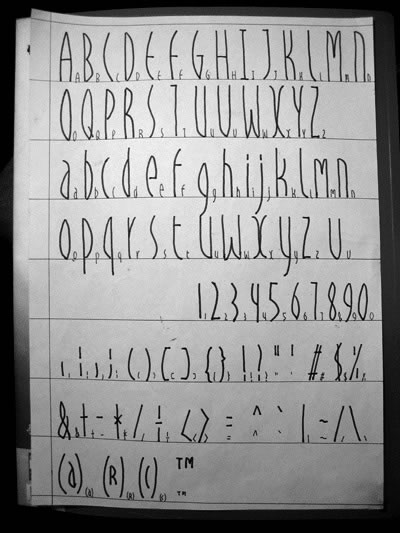 A B C D E F G H I J K L M N
O Q P R S T U U W X Y Z
a b c d e f g h i j k l m n
o p q r s t u w x y z u
1 2 3 4 5 6 7 8 9 0
. , : ; ( ) [ ] { } ! ? " ' # $ %
& + - * / ÷ < > = ^ ` | ~ / \
(a) (R) (C) TM